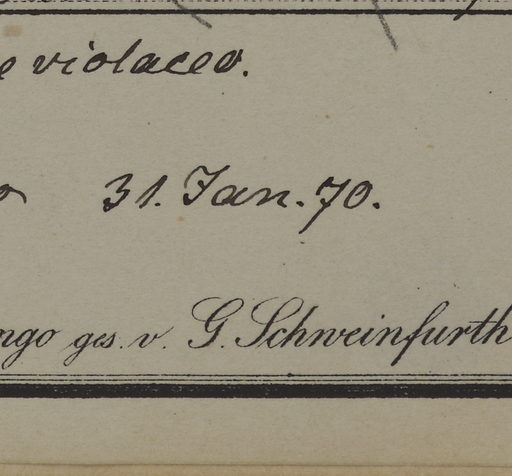 violaceo.
31. Jan. 70.
ngo ges. v. G. Schweinfurth